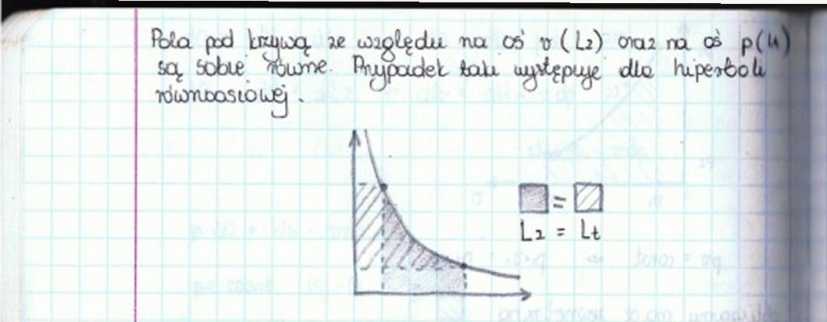 Pola pod krzywą ze względu na oś v (Lz) oraz na oś p (Lt)
są sobie równe. Przypadek taki występuje dla hiperboli
równoosiowej.
=
Lz = Lt